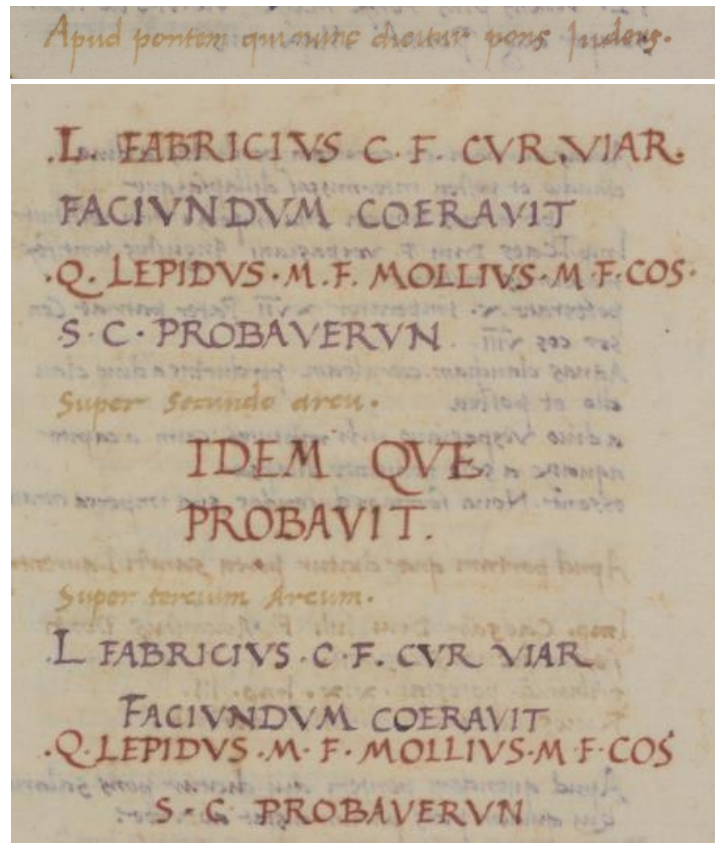 Apud pontem qui nunc dicitur pons Iudeus.
.L. FABRICIVS C. F. CVR. VIAR.
FACIVNDVM COERAVIT
.Q. LEPIDVS. M. F. MOLLIVS. M F. COS.
.S. C. PROBAVERVN
Super Secundo arcu.
IDEM QVE
PROBAVIT.
Super tercium Arcum.
.L FABRICIVS. C. F. CVR VIAR
FACIVNDVM COERAVIT
.Q. LEPIDVS. M. F. MOLLIVS. M F. COS
S. C. PROBAVERVN